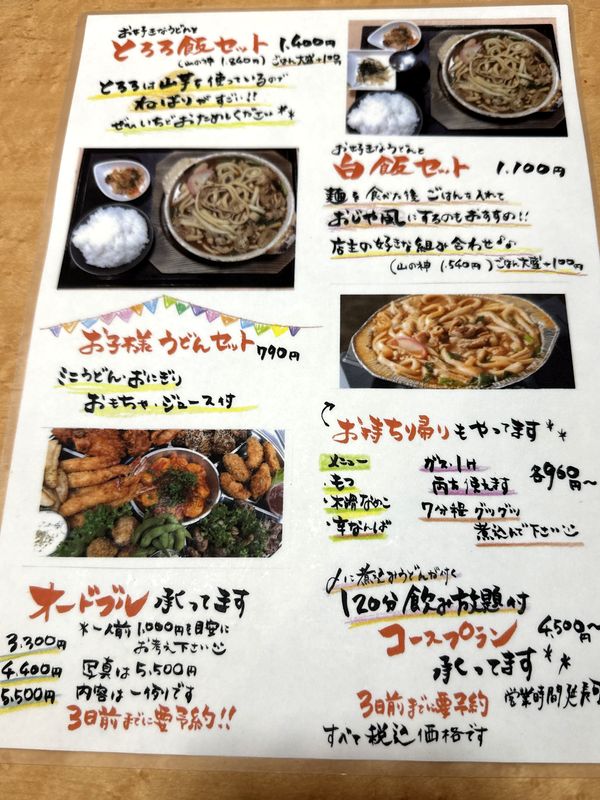 お好きなうどんと
とろろ飯セット 1.400円
(山の神 1.840円) ごはん大盛+100円
とろろは山芋を使っているので
ねばりがすごい!!
ぜひいちどおためしください**
お好きなうどんと
白飯セット 1.100円
麺を食べた後ごはんを入れて
おじや風にするのもおすすめ!!
店主の好きな組み合わせ♪♪
(山の神 1.540円) ごはん大盛+100円
お子様うどんセット 790円
ミニうどん・おにぎり
おもちゃ・ジュース付
お持ち帰りもやってます**
メニュー
・もつ
・木滑なめこ
・辛なんば
ガス・IH
両方使えます
7分程グツグツ
煮込んで下さい
各960円~
オードブル承ってます
*一人前1,000円を目安に
お考え下さい
3.300円
4.400円
5.500円
写真は5,500円
内容は一例です
3日前までに要予約!!
〆に煮込みうどんが付く
120分飲み放題付
コースプラン 4.500円~
承ってます**
3日前までに要予約
営業時間延長可
すべて税込価格です